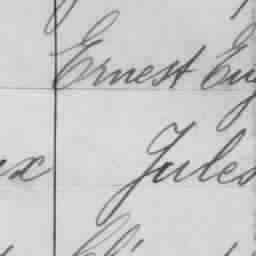 Ernest Eug
ex Jules